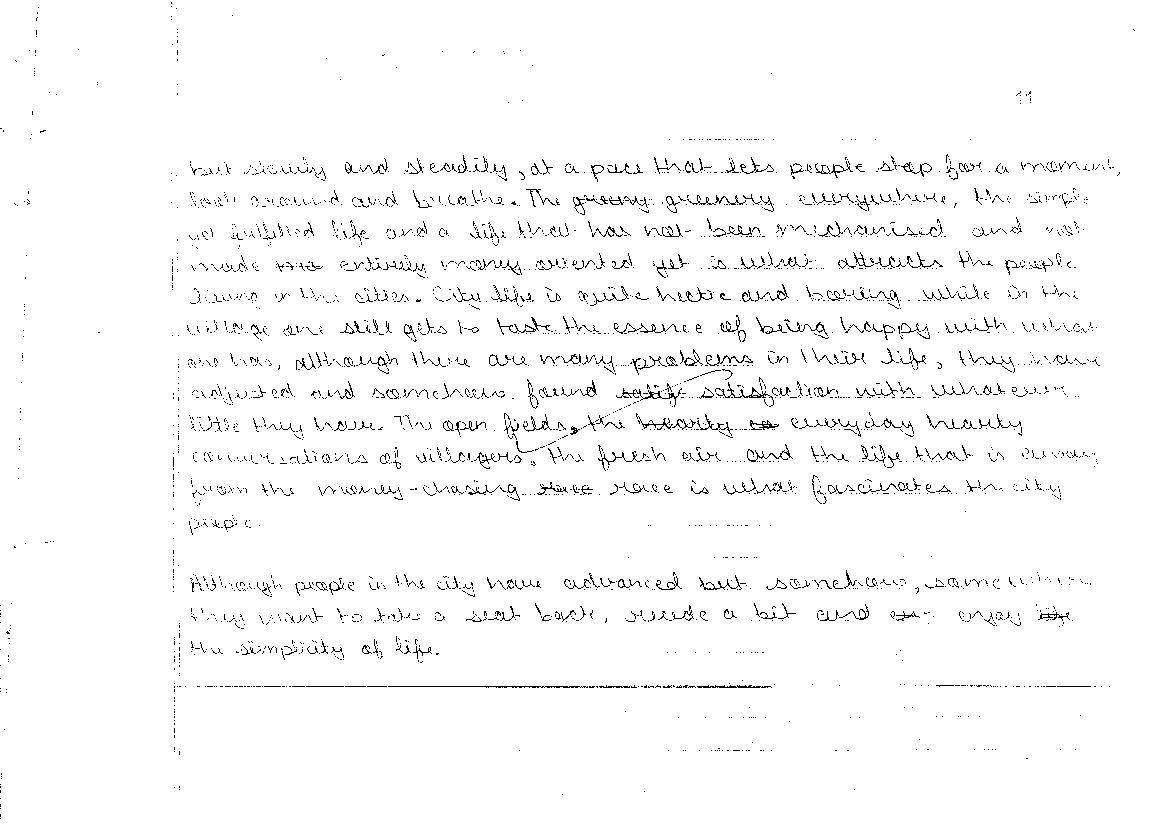 11
but slowly and steadily, at a pace that lets people stop for a moment,
look around and breathe. The greeny greenery everywhere, the simple
yet fulfilled life and a life that has not been mechanised and not
made entirely money oriented yet is what attracts the people
living in the cities. City life is quite hectic and boring while in the
village one still gets to taste the essence of being happy with what
one has, although there are many problems in their life, they have
adjusted and somehow found satisf satisfaction with whatever
little they have. The open fields, the hearty everyday hearty
conversations of villagers, the fresh air and the life that is away
from the money-chasing race race is what fascinates the city
people.
Although people in the city have advanced but somehow, somewhere
they want to take a seat back, a bit and enjoy life
the simplicity of life.